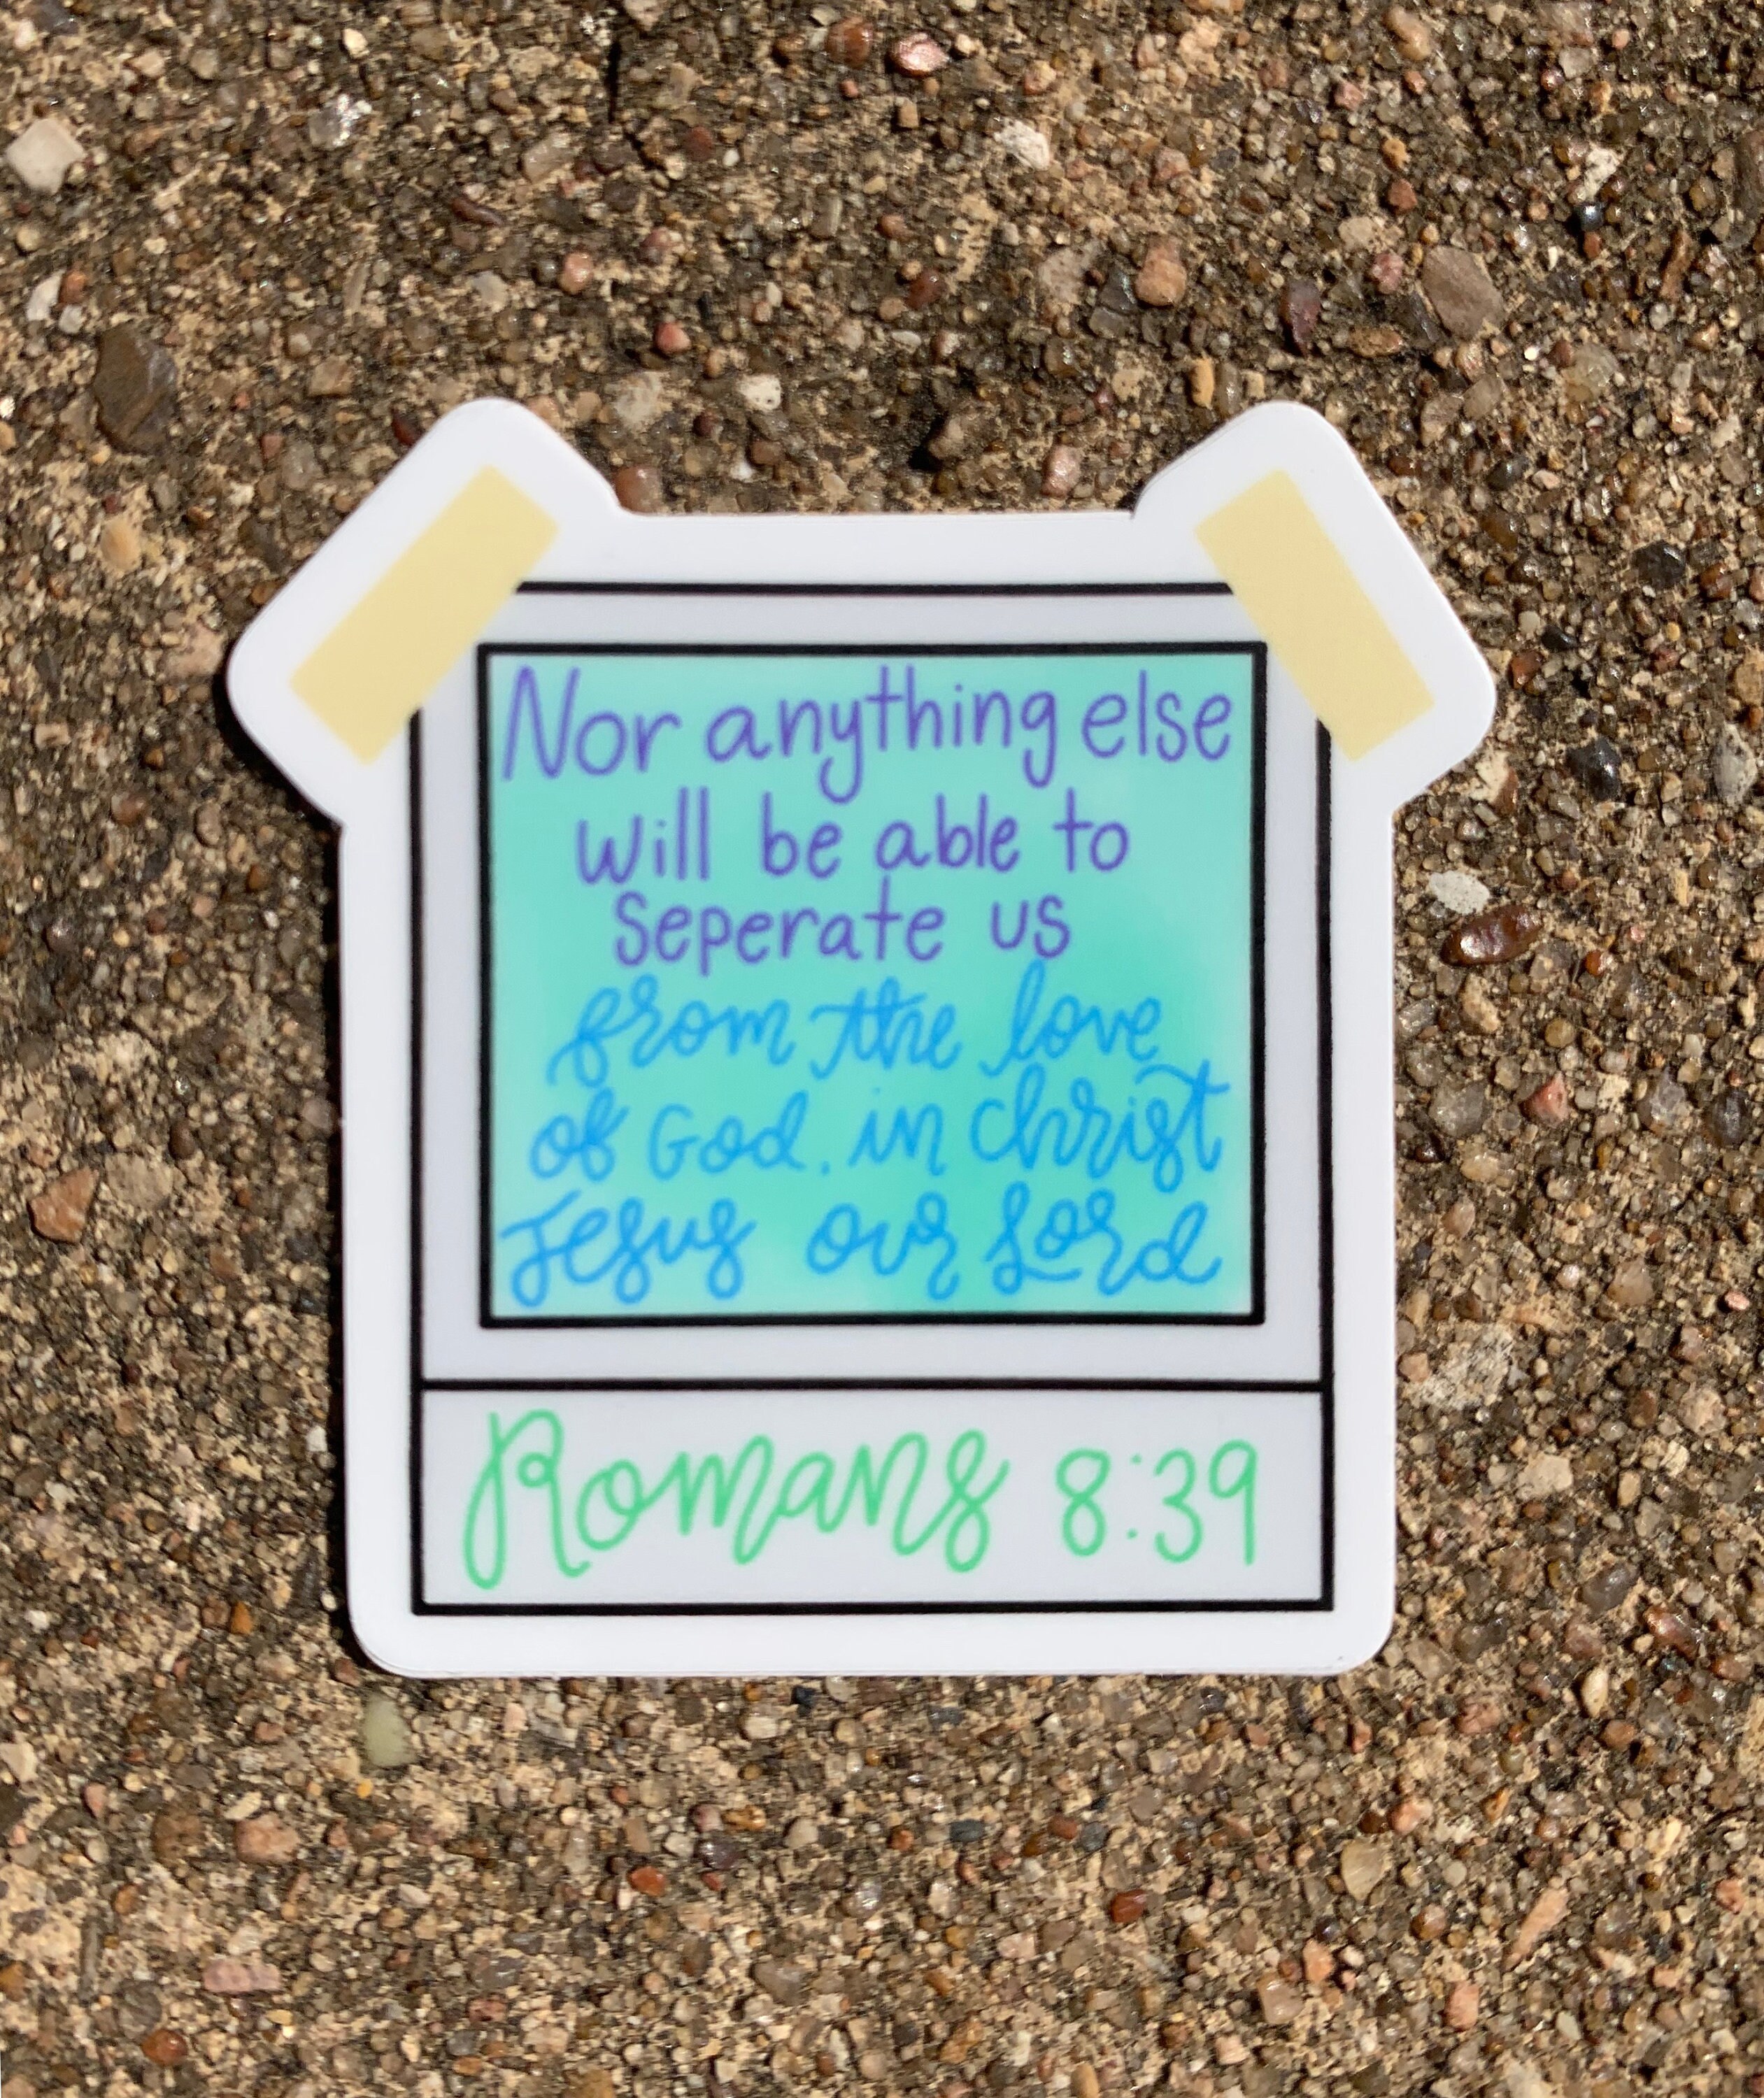 Nor anything else
will be able to
seperate us
from the love
of God. in Christ
Jesus our Lord
Romans 8:39